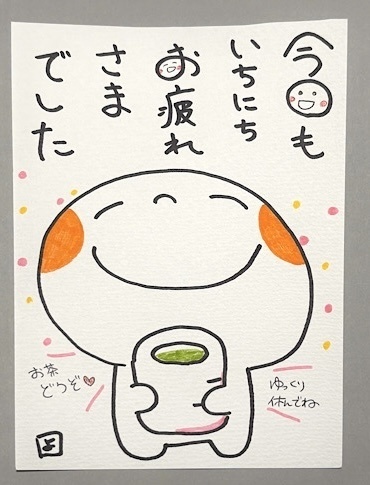 今日も
いちにち
お疲れ
さま
でした
お茶
どうぞ♡
ゆっくり
休んでね
よ